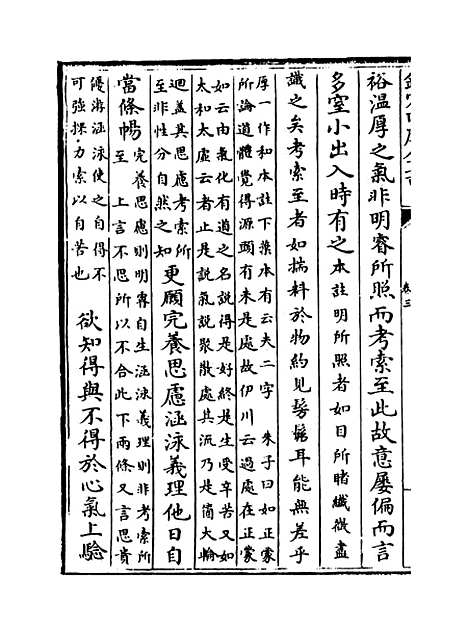 裕溫厚之氣非明睿所照而考索至此故意屢偏而言
多窒小出入時有之本註明所照者如目所睹纖微盡
識之矣考索至者如揣料於物約見髣髴耳能無差乎
厚一作和本註下葉本有云夫二字　朱子曰如正蒙
所論道體覺得源頭有未是處故伊川云過處在正蒙
如云由氣化有道之名説得是好終是生受辛苦又如
太和太虛云者止是説氣説聚散處其流乃是箇大輪
迴蓋其思慮考索所
至非性分自然之知
更願完養思慮涵泳義理他日自
當條暢
完養思慮則明睿自生涵泳義理則非考索所
至　上言不思所以不合此下兩條又言思貴
優游涵泳使之自得不
可強探力索以自苦也
欲知得與不得於心氣上驗